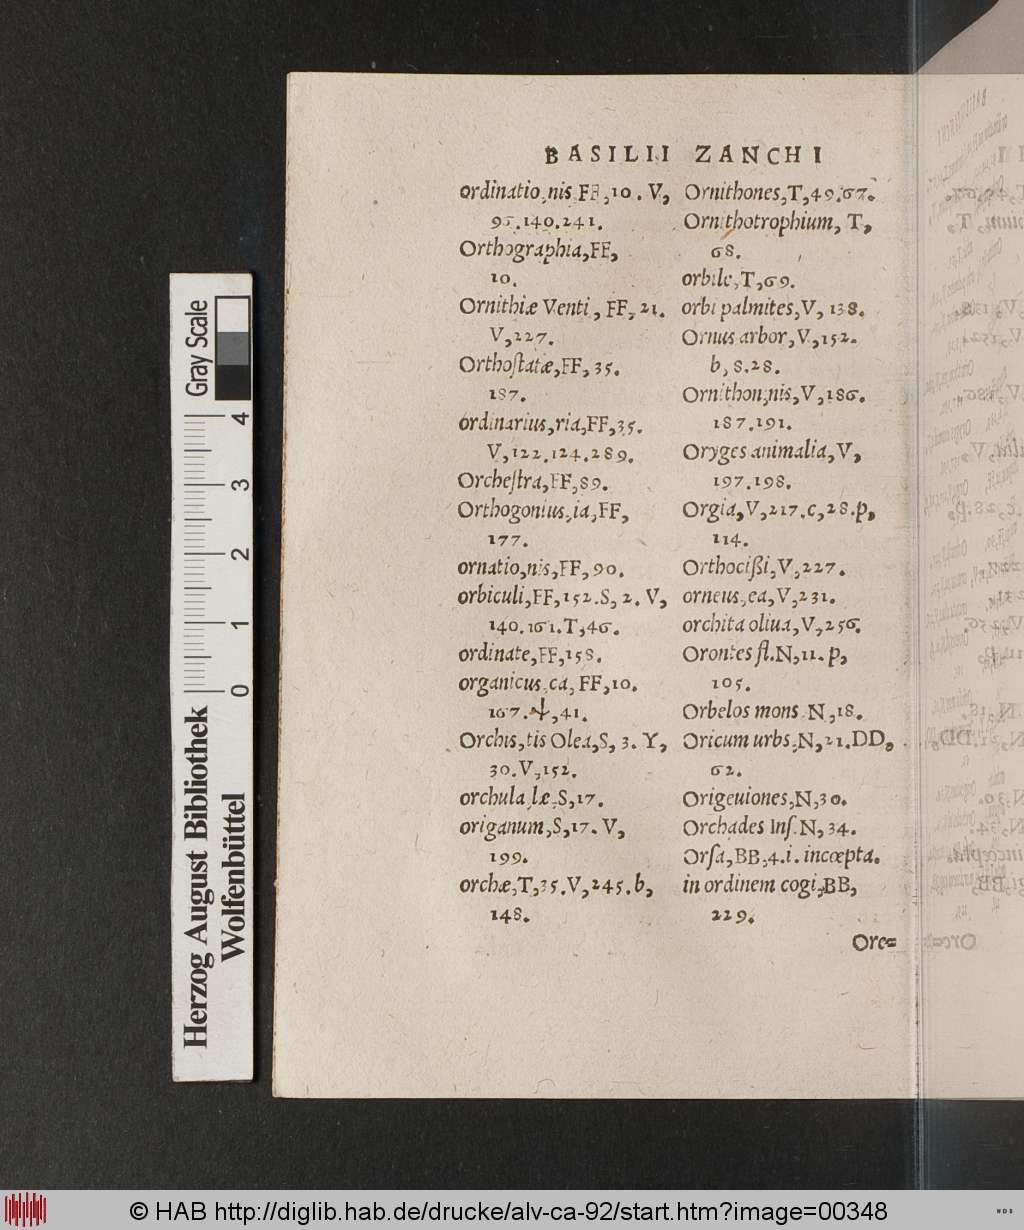 BASILII ZANCHI
ordinatio,nis, FF,10. V,
96.140.241.
Orthographia,FF,
10.
Ornithiæ Venti, FF,21.
V,227.
Orthoſtatæ,FF,35.
187.
ordinarius,ria,FF,35.
V,122.124.289.
Orcheſtra,FF,89.
Orthogonius,ia,FF,
177.
ornatio,nis,FF,90.
orbiculi,FF,152.S,2. V,
140.161.T,46.
ordinate,FF,158.
organicus,ca, FF,10.
167. ,41.
Orchis,tis Olea,S, 3. Y,
30.V,152.
orchula,læ,S,17.
origanum,S,17. V,
199.
orchæ,T,35.V,245.b,
148.
Ornithones,T,49.67.
Ornithotrophium, T,
68.
orbile,T,69.
orbi palmites,V, 138.
Ornus arbor,V,152.
b,8.28.
Ornithon,nis,V,186.
187.191.
Oryges animalia,V,
197.198.
Orgia,V,217.c,28.p,
114.
Orthocißi,V,227.
orneus,ea,V,231.
orchita oliua,V,256.
Orontes fl.N,11.p,
105.
Orbelos mons N,18.
Oricum urbs,N,21.DD,
62.
Origeuiones,N,30.
Orchades Inſ.N,34.
Orſa,BB,4.i. incœpta.
in ordinem cogi,BB,
229.
Ore=
Gray Scale
4
3
2
1
0
Herzog August Bibliothek
Wolfenbüttel
© HAB http://diglib.hab.de/drucke/alv-ca-92/start.htm?image=00348
WDB